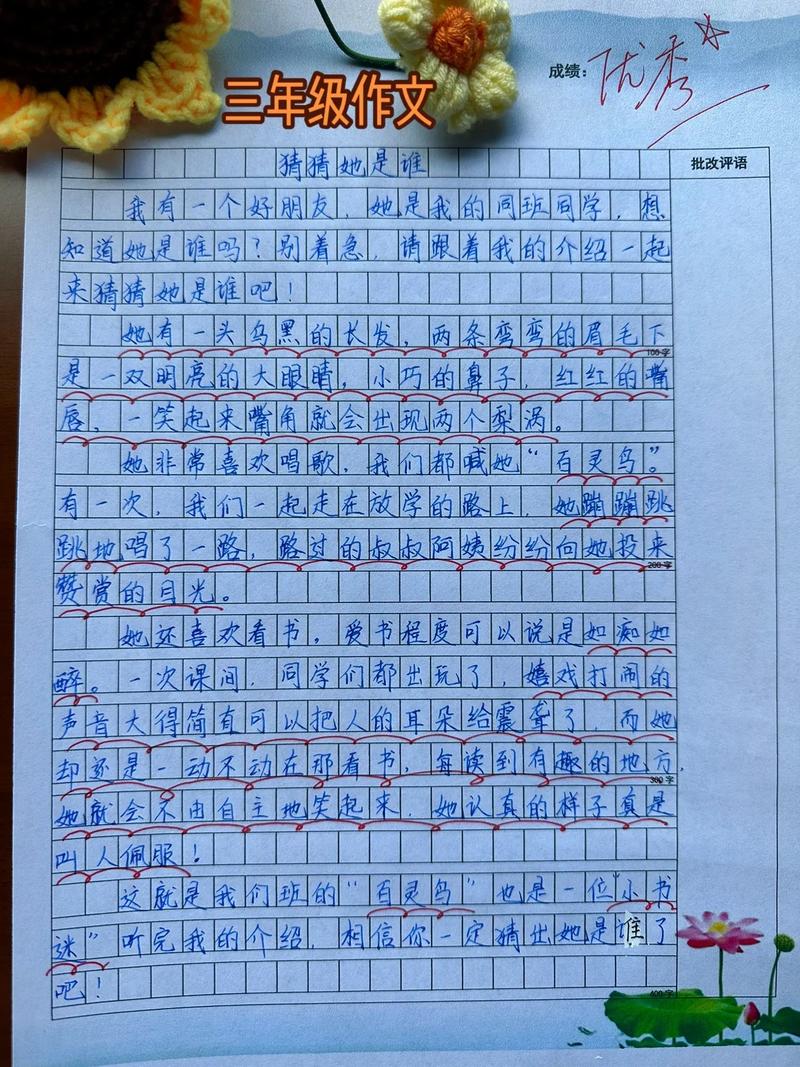 三年级作文
成绩：优秀
批改评语
猜猜她是谁
我有一个好朋友，她是我的同班同学，想
知道她是谁吗？别着急，请跟着我的介绍一起
来猜猜她是谁吧！
她有一头乌黑的长发，两条弯弯的眉毛下
100字
是一双明亮的大眼睛，小巧的鼻子，红红的嘴
唇，一笑起来嘴角就会出现两个梨涡。
她非常喜欢唱歌，我们都喊她“百灵鸟”。
有一次，我们一起走在放学的路上，她蹦蹦跳
跳地唱了一路，路过的叔叔阿姨纷纷向她投来
200字
赞赏的目光。
她还喜欢看书，爱书程度可以说是如痴如
醉。一次课间，同学们都出玩了，嬉戏打闹的
声音大得简直可以把人的耳朵给震聋了，而她
却还是一动不动在那看书，每读到有趣的地方，
300字
她就会不由自主地笑起来，她认真的样子真是
叫人佩服！
这就是我们班的“百灵鸟”也是一位“小书
迷”听完我的介绍，相信你一定猜出她是谁了
吧！
400字